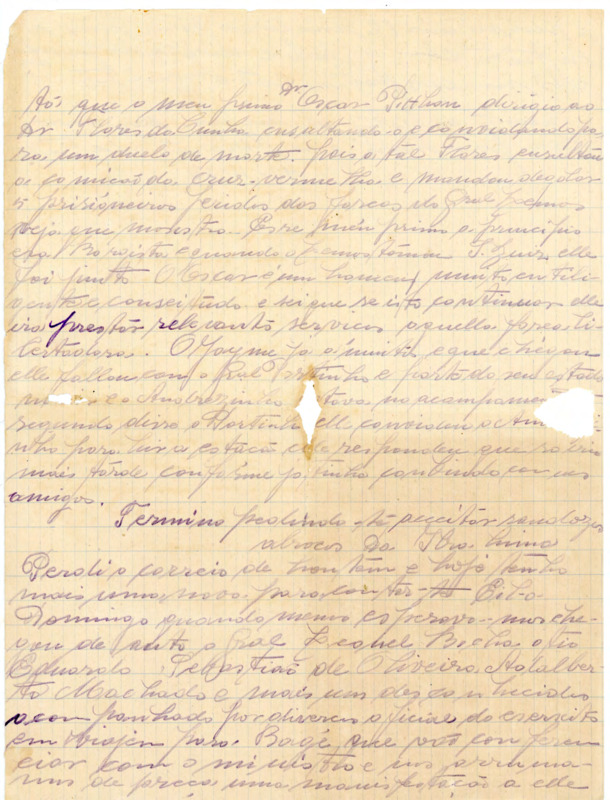 Aós que o meu primo Dr Oscar Pithan dirigio ao
Dr Flores da Cunha ensultando-o e convidando pa
ra um duelo de morte. pois o tal Flores ensultou
a comicão da cruz-vermelha e mandou degolar
5 prisigneiros feridos das forcas do Gral Zecanos
veja que monstro. Esse meu primo a principio
era Borgista e quando o Zeca tomou S. Luiz elle
foi junto O Oscar é um homem muito enteli
gente e conseitudo e sei que se isto continuar elle
ira prestár relevantes servicos aquella forca li
bertadora. O Jayme ja a muito que chegou
elle fallou com o Gral Portinho e parte do seu estado
e o Andrezinho estava no acampamento
segundo disse o Portinho elle convidou o
nho para a estacão elle respondeu que so iria
mais tárde conforme já tinha conbinado com os
amigos.
Termino pedindo-te acceitár saudozos
abracos da Tua
Perdi o correio de hontem e hoje tenho
mais uma nova para contar-te Eil-a
Domingo quando menos esperava-mos che
gou de auto o Gral Zecael Rocha o tio
Eduardo Sebastião de Oliveira Adalber
to Machado e mais um desconhecido
acompanhado por diversos oficiae do exercito
em viajem para Bagé que vão conferen
ciar com o ministro e nos arruma
mos de preça uma manifestacão a elle